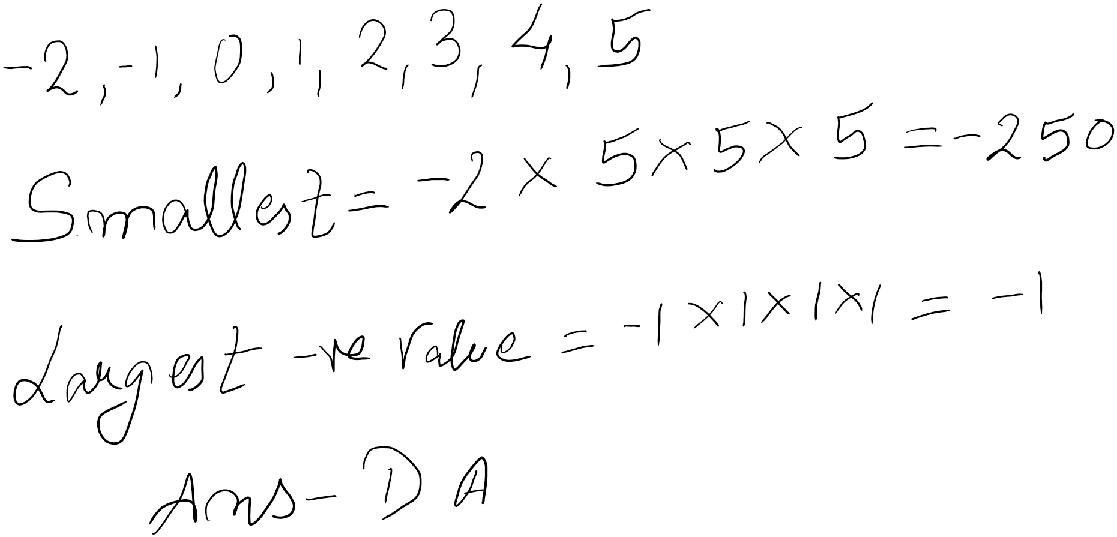 -2, -1, 0, 1, 2, 3, 4, 5
Smallest = -2 × 5 × 5 × 5 = -250
Largest -ve Value = -1 × 1 × 1 × 1 = -1
Ans - D A